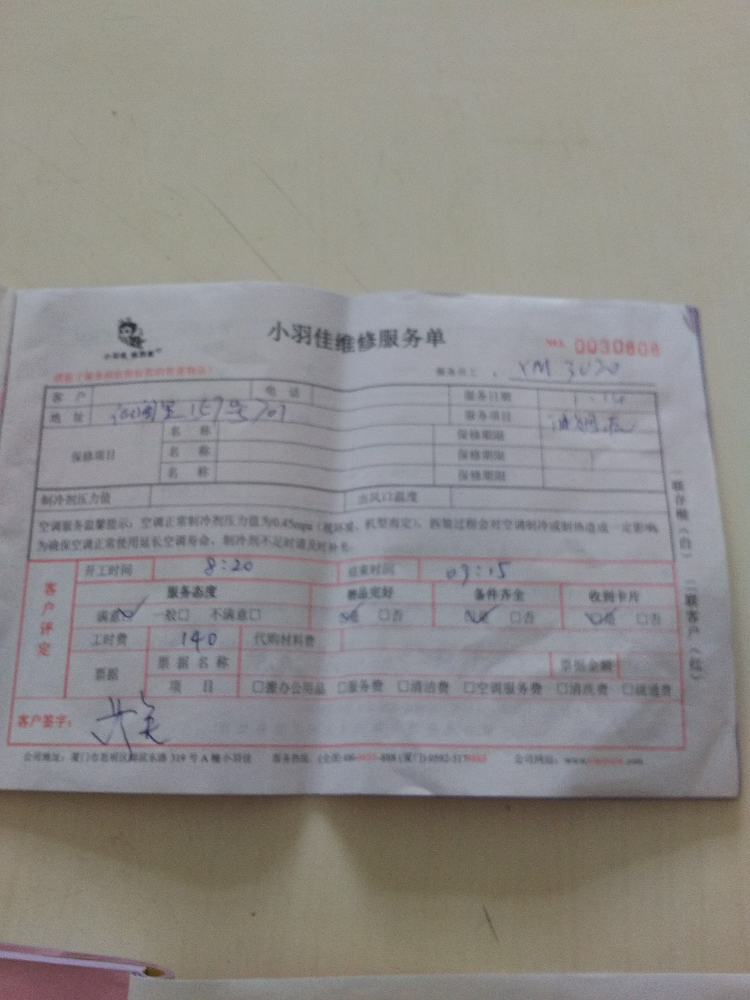 小羽佳维修服务单
NO. 0030808
服务员工： YM 3020
客 户
电 话
服务日期 1.14
地 址 157号701
服务项目
保修项目
名 称
保修期限
名 称
保修期限
名 称
保修期限
制冷剂压力值
出风口温度
空调服务温馨提示：空调正常制冷剂压力值为0.45mpa（视环境、机型而定），拆装过程会对空调制冷或制热造成一定影响，
为确保空调正常使用延长空调寿命，制冷剂不足时请及时补充。
客户评定
开工时间 8:20
结束时间 09:15
服务态度
物品完好
备件齐全
收到卡片
满意☑ 一般□ 不满意□
☑是 □否
☑是 □否
☑是 □否
工时费 140
代购材料费
票据
票据名称
票据金额
项 目
□搬办公用品 □服务费 □清洁费 □空调服务费 □清洗费 □疏通费
客户签字：
公司地址：厦门市思明区湖滨东路 319 号 A 幢小羽佳
一联存根（白） 二联客户（红）